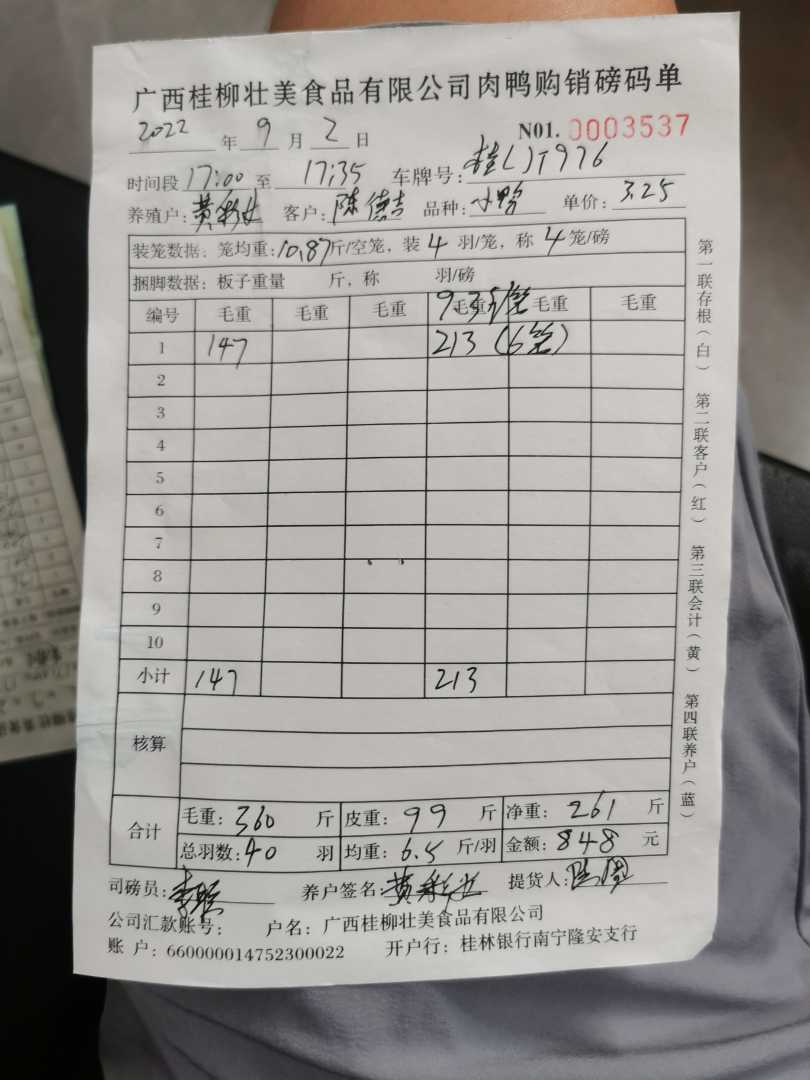 广西桂柳壮美食品有限公司肉鸭购销磅码单
2022 年 9 月 2 日 N01. 0003537
时间段 17:00 至 17:35 车牌号:
养殖户: 客户: 陈德吉 品种: 小鸭 单价: 3.25
装笼数据: 笼均重: 10.87 斤/空笼, 装 4 羽/笼, 称 4 笼/磅
捆脚数据: 板子重量 斤, 称 羽/磅
9.3斤/笼
编号 毛重 毛重 毛重 毛重 毛重 毛重
1 147 213 (6笼)
2
3
4
5
6
7
8
9
10
小计 147 213
核算
合计 毛重: 360 斤 皮重: 99 斤 净重: 261 斤
总羽数: 40 羽 均重: 6.5 斤/羽 金额: 848 元
司磅员: 养户签名: 提货人:
公司汇款账号: 户名: 广西桂柳壮美食品有限公司
账 户: 660000014752300022 开户行: 桂林银行南宁隆安支行
第一联存根(白) 第二联客户(红) 第三联会计(黄) 第四联养户(蓝)